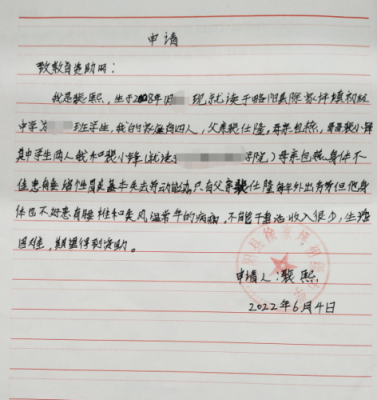 申请
致教育资助网：
我是裴熙，生于2008年 现就读于略阳县徐家坪镇初级
中学 班学生，我的家庭有四人，父亲裴仕隆，母亲包 ，哥哥裴小锋
其中学生两人我和裴小锋（就读 学院）母亲包 身体不
佳患有腰 基本失去劳动能力，只有父亲裴仕隆每年外出务劳但他身
体也不好患有腰椎和类风湿常年的病痛，不能干重活收入很少，生活
困难，期望得到资助。
申请人：裴熙
2022年6月4日